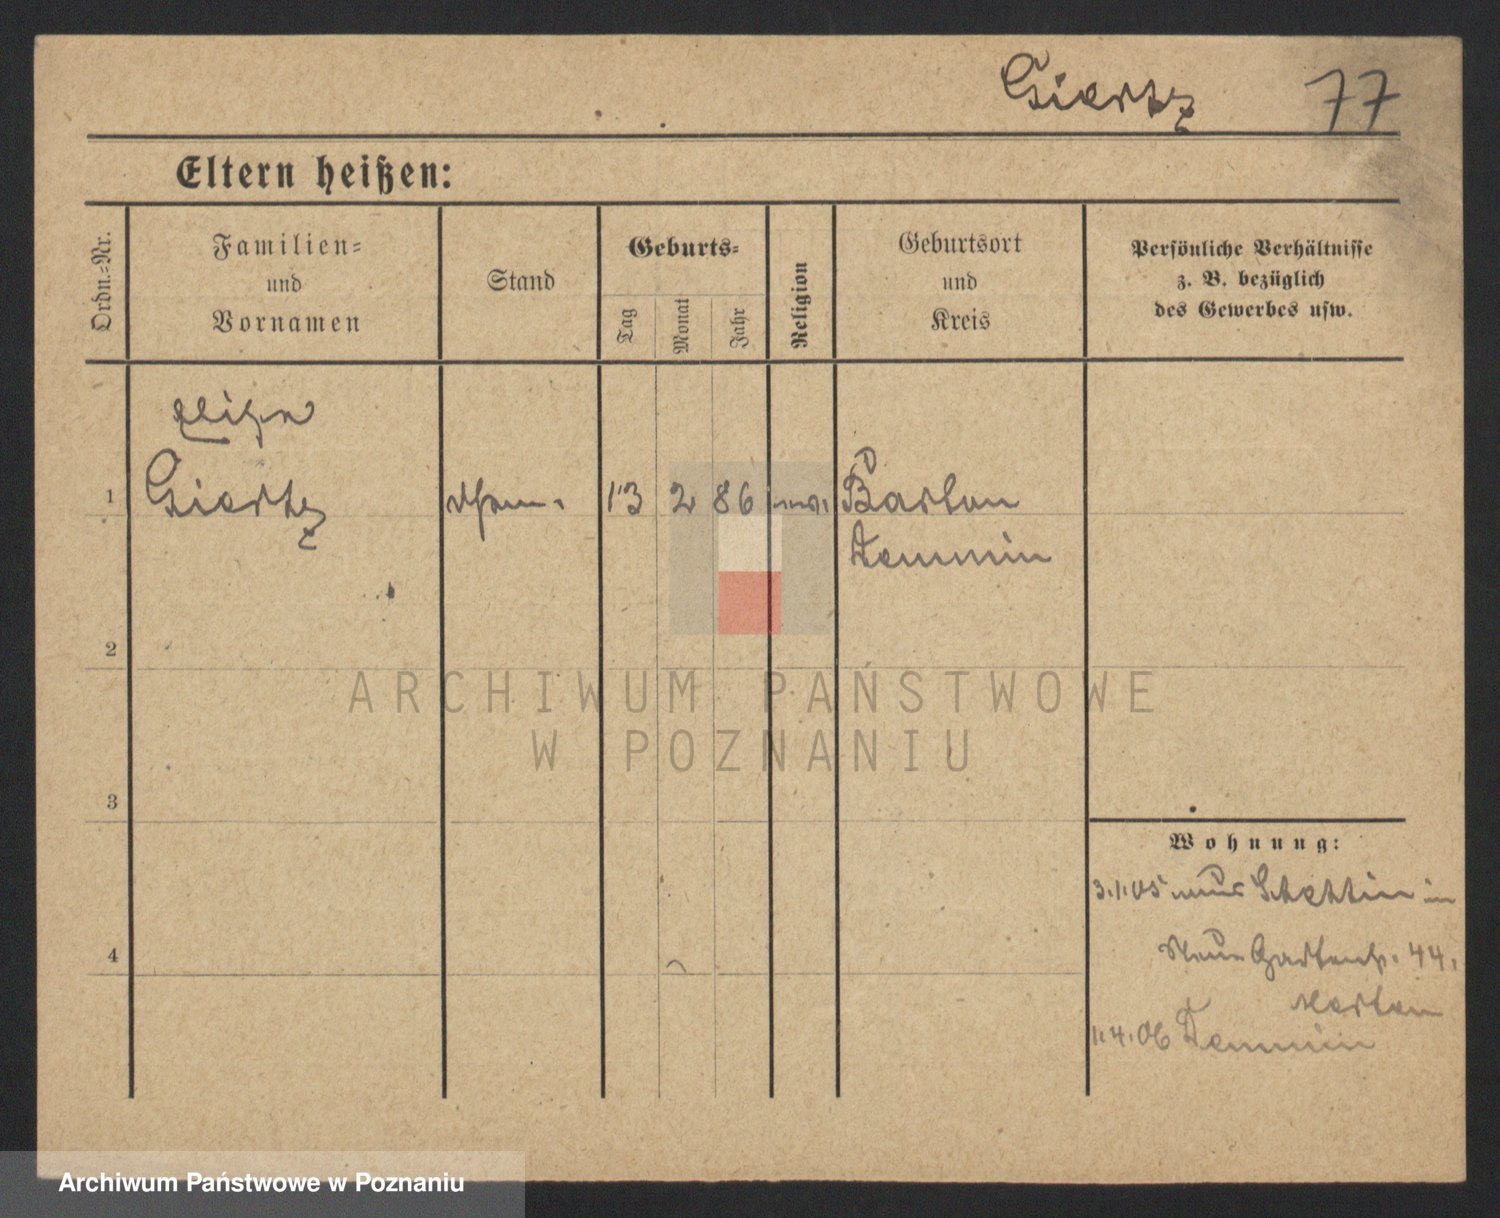 Giertz 77
Eltern heißen:
Ordn.=Nr.
Familien=
und
Vornamen
Stand
Geburts=
Tag
Monat
Jahr
Religion
Geburtsort
und
Kreis
Persönliche Verhältnisse
z. B. bezüglich
des Gewerbes usw.
1 Giertz 13 2 86
Demmin
2
3
4
Wohnung:
3.1.05 Stettin in
Neue 44.
1.4.06 Demmin
ARCHIWUM PAŃSTWOWE
W POZNANIU
Archiwum Państwowe w Poznaniu